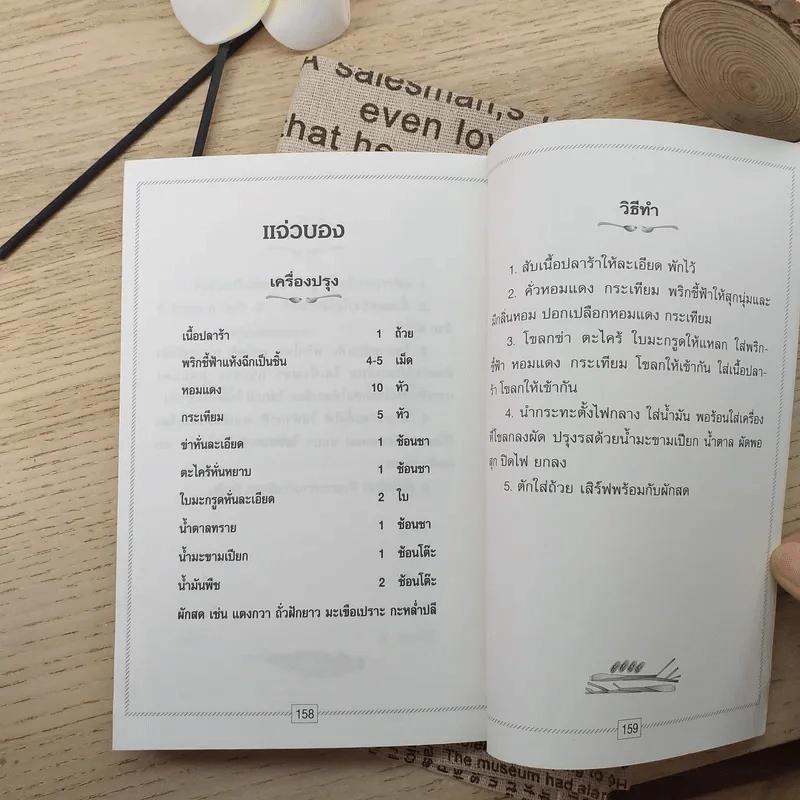 A salesman,s
even lov
that he
แจ่วบอง
เครื่องปรุง
เนื้อปลาร้า 1 ถ้วย
พริกชี้ฟ้าแห้งฉีกเป็นชิ้น 4-5 เม็ด
หอมแดง 10 หัว
กระเทียม 5 หัว
ข่าหั่นละเอียด 1 ช้อนชา
ตะไคร้หั่นหยาบ 1 ช้อนชา
ใบมะกรูดหั่นละเอียด 2 ใบ
น้ำตาลทราย 1 ช้อนชา
น้ำมะขามเปียก 1 ช้อนโต๊ะ
น้ำมันพืช 2 ช้อนโต๊ะ
ผักสด เช่น แตงกวา ถั่วฝักยาว มะเขือเปราะ กะหล่ำปลี
158
วิธีทำ
1. สับเนื้อปลาร้าให้ละเอียด พักไว้
2. คั่วหอมแดง กระเทียม พริกชี้ฟ้าให้สุกนุ่มและ
มีกลิ่นหอม ปอกเปลือกหอมแดง กระเทียม
3. โขลกข่า ตะไคร้ ใบมะกรูดให้แหลก ใส่พริก-
ชี้ฟ้า หอมแดง กระเทียม โขลกให้เข้ากัน ใส่เนื้อปลา-
ร้า โขลกให้เข้ากัน
4. นำกระทะตั้งไฟกลาง ใส่น้ำมัน พอร้อนใส่เครื่อง
ที่โขลกลงผัด ปรุงรสด้วยน้ำมะขามเปียก น้ำตาล ผัดพอ
สุก ปิดไฟ ยกลง
5. ตักใส่ถ้วย เสิร์ฟพร้อมกับผักสด
159
The museum had alar